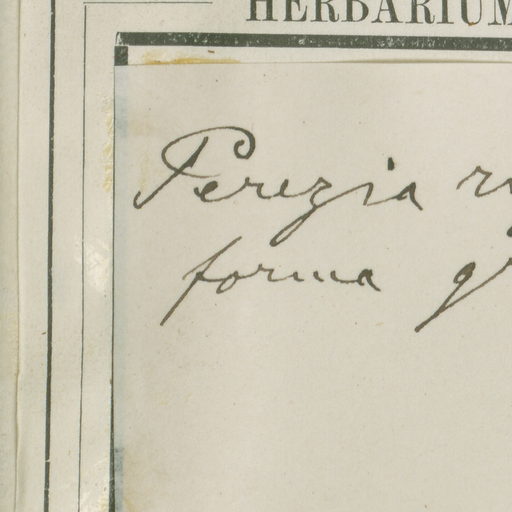 HERBARIUM
Perezia
forma